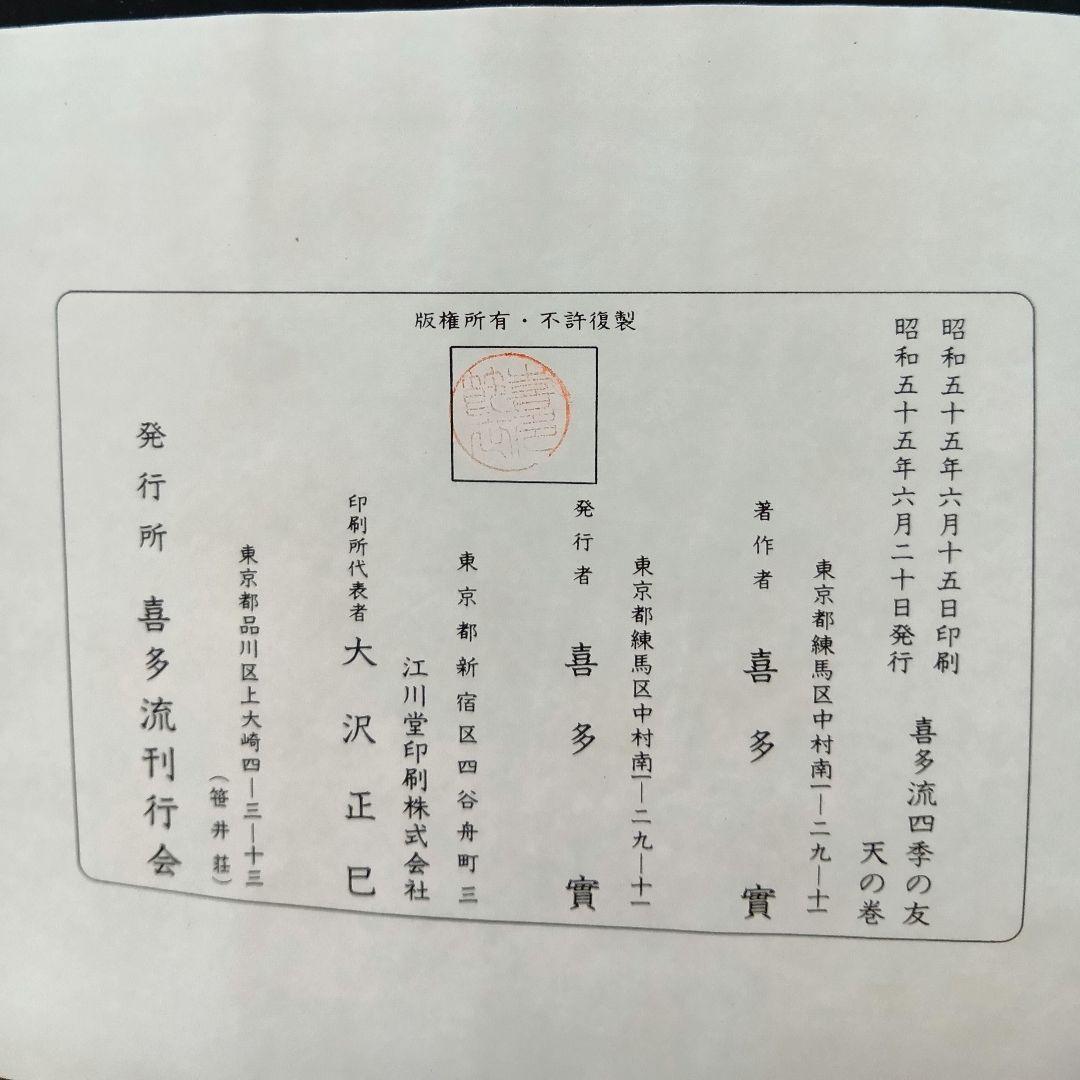 版権所有・不許復製
昭和五十五年六月十五日印刷
昭和五十五年六月二十日発行
喜多流四季の友
天の巻
東京都練馬区中村南一—二九—十一
著作者 喜多實
東京都練馬区中村南一—二九—十一
発行者 喜多實
東京都新宿区四谷舟町三
江川堂印刷株式会社
印刷所代表者 大沢正巳
東京都品川区上大崎四—三—十三
(笹井荘)
発行所 喜多流刊行会